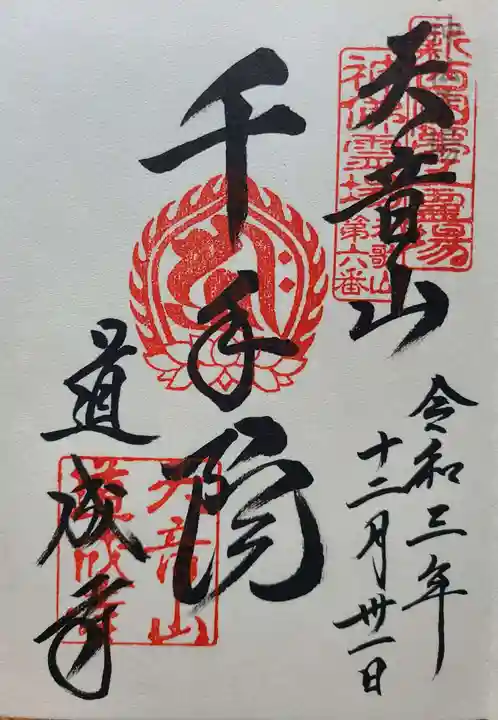 新西国第五霊場
神佛霊場
和歌山第六番
天音山
千手院
道成寺
天音山
道成寺
令和三年
十二月卅一日